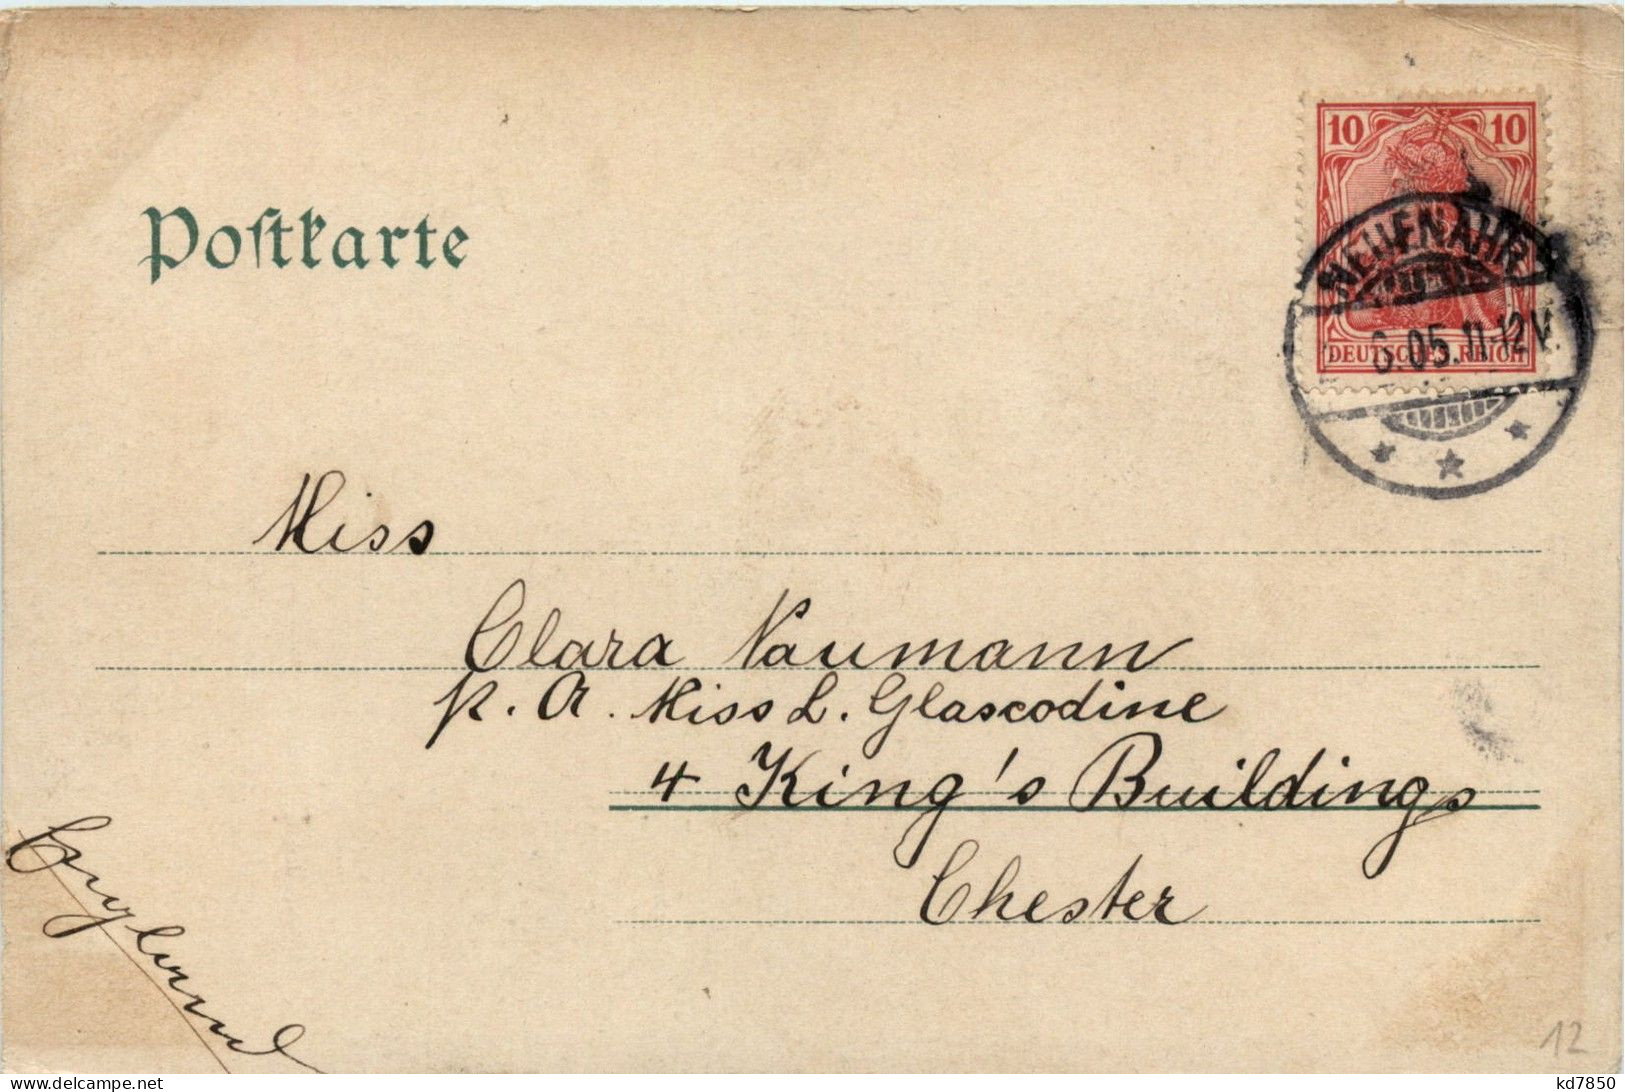 Postkarte
10 10
NEUENAHR
6.05.11-12V.
DEUTSCHES REICH
Miss
Clara Naumann
p. A. Miss L. Glascodine
4 King's Buildings
Chester
England
12
delcampe.net
kd7850